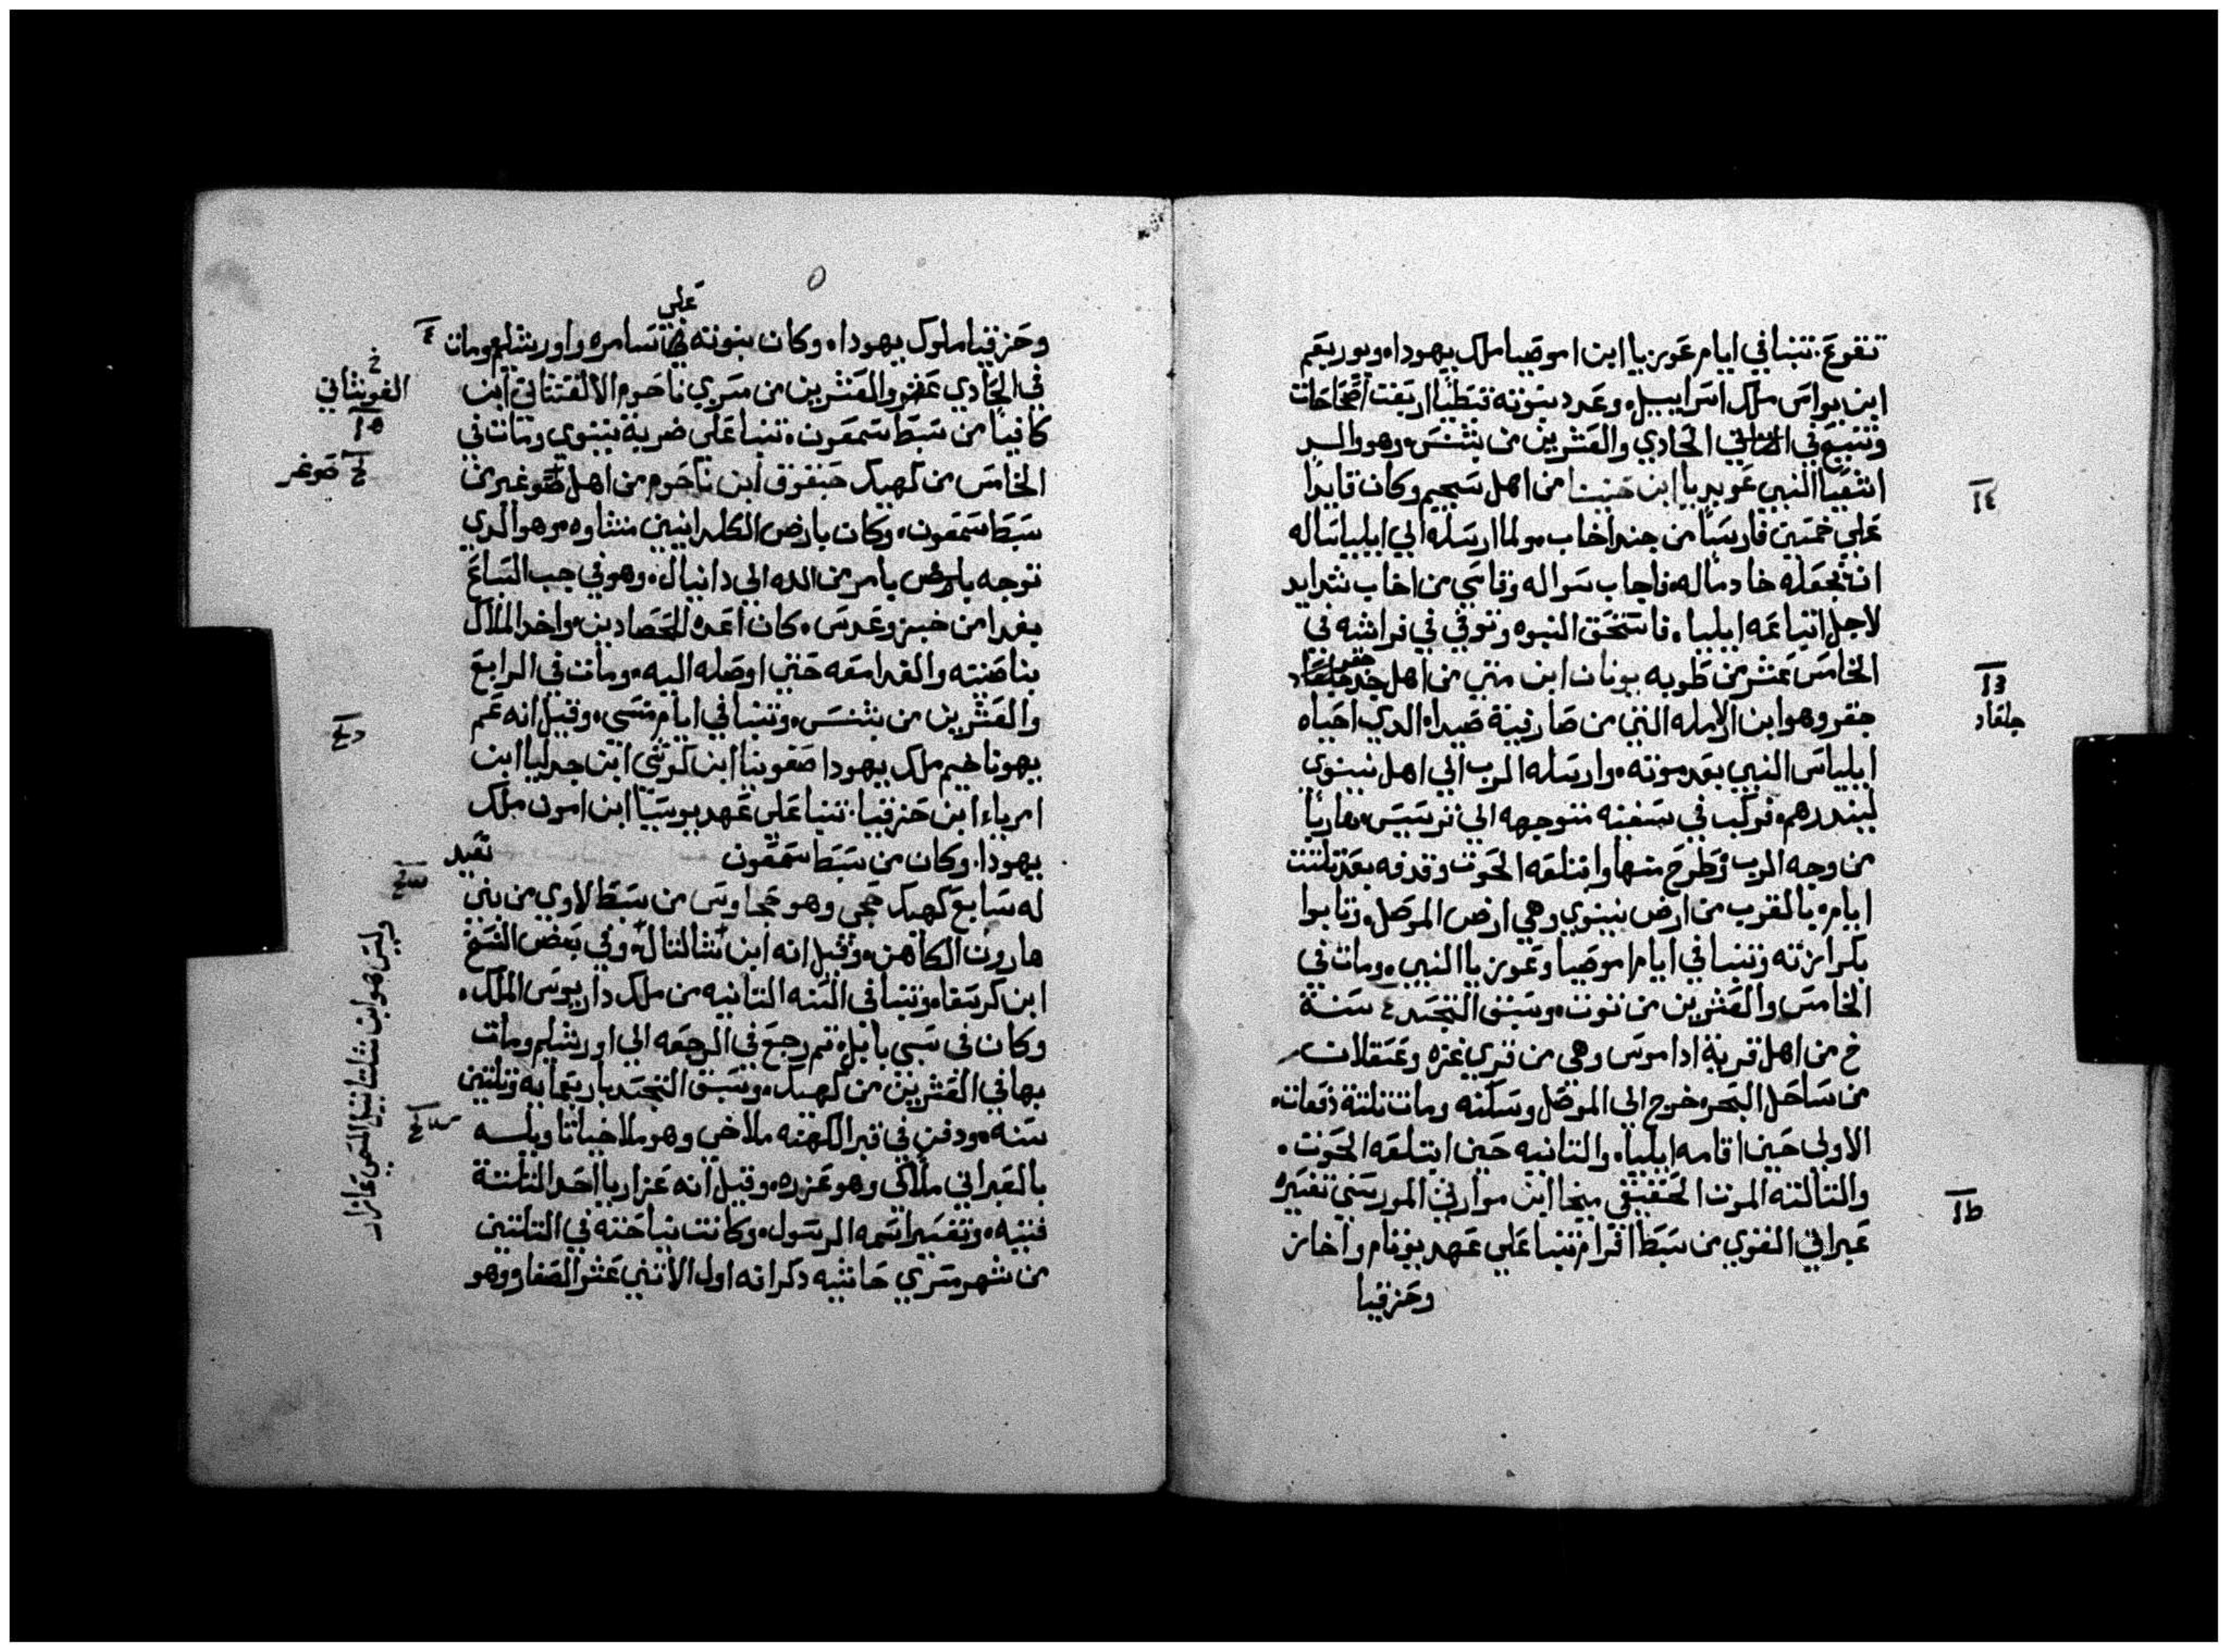 تقوع. تنبا في ايام عوزيا ابن اموصيا ملك يهودا، ويوربعم
ابن يواس ملك اسراييل، وعدد نبوته قبطيا اربعت اصحاحات
وتنيح في الحادي والعشرين من بشنس، وهو والد
اشعيا النبي عوبديا ابن حننيا من اهل سجيم وكان قايدا
علي خمسين فارسا من جند اخاب، ولما ارسله الي ايليا ساله
انه يجعله خادما له، فاجاب سواله وقاسي من اخاب شدايد
لاجل اتباعه ايليا، فاستحق النبوه وتوفي في فراشه في
الخامس عشر من طوبه يونان ابن متي من اهل جد
حفر
جلعاد
جتفر وهو ابن الارمله التي من صارفية صيدا، الدي احياه
ايلياس النبي بعد موته، وارسله الرب الي اهل نينوي
لينددرهم، فركب في سفينه متوجهه الي ترسيس، هاربا
من وجه الرب وطرح منها وابتلعه الحوت وقدفه بعد تلتت
ايام، بالقرب من ارض نينوي وهي ارض الموصل، وتابوا
بكرازته وتنبا في ايام اموصيا وعوزيا النبي، ومات في
الخامس والعشرين من توت، وسبق التجسد ٤ سنة
خ من اهل قرية اداموس وهي من قري غزه وعسقلان
من ساحل البحر، خرج الي الموصل وسكنه ومات تلتة دفعات،
الاولي حين اقامه ايليا، والتانيه حين ابتلعه الحوت،
والتالته الموت الحقيقي ميخا ابن موارتي المورستي تفسيره
عبراني القوي من سبط افرام تنبا علي عهد يوتام واخاز
وحزقيا
علي
وحزقيا ملوك يهودا، وكان نبوته في سامره واورشليم ومات
في الحادي عشر والعشرين من مسري ناحوم الالقشتاني ابن
كانيا من سبط سمعون، تنبا علي ضربة نينوي ومات في
الخامس من كهيك حبقوق ابن ناحوم من اهل صوغير من
سبط سمعون، وكان بارض الكلدانيين منشاوه، وهو الدي
توجه بامر من الله الي دانيال، وهو في جب السباع
بغدا من خبز وعدس، كان اعده للحصادين، واخد الملاك
بناصيته والغدا معه حتي اوصله اليه، ومات في الرابع
والعشرين من بشنس، وتنبا في ايام منسي، وقيل انه عم
يهوناخيم ملك يهودا صفونيا ابن كوشي ابن جدليا ابن
امرياء ابن حزقيا. تنبا علي عهد يوسيا ابن امون ملك
يهودا. وكان من سبط سمعون نعيد
له سابع كهيك حجي وهو حجاوس من سبط لاوي من بني
هارون الكاهن، وقيل انه ابن شالتال، وفي بعض النسخ
ابن كرسقا، وتنبا في السنه التانيه من ملك داريوس الملك،
وكان في سبي بابل، تم رجع في الرجعه الي اورشليم ومات
بها في العشرين من كهيك، وسبق التجسد باربعمايه وتلتين
سنه، ودفن في قبر الكهنه ملاخي وهو ملاخياتا ويلسه
بالعبراني ملاكي وهو عزره، وقيل انه عزاريا احد التلتة
فتيه، وتفسير اسمه الرسول، وكانت نياحته في التلتين
من شهر مسري حاشيه دكر انه اول الاتني عشر الصغار وهو
٤
خ
القوشاني
خ صوغر
وليس هو ابن شلتاييل المسمي عازار
ح
جلعاد